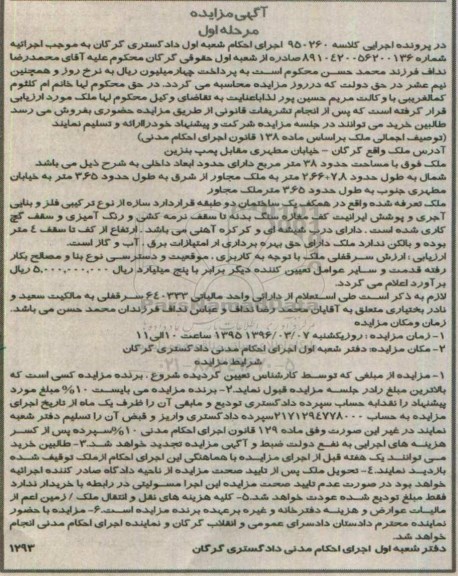 آگهی مزایده
مرحله اول
در پرونده اجرایی کلاسه ۹۵۰۲۶۰ اجرای احکام شعبه اول دادگستری گرگان به موجب اجرائیه
شماره ۸۹۱۰۴۲۰۰۵۶۲۰۰۱۳۶ صادره از شعبه اول حقوقی گرگان محکوم علیه آقای محمدرضا
نداف فرزند محمد حسن محکوم است به پرداخت چهارمیلیون ریال به نرخ روز و همچنین
نیم عشر در حق دولت که درروز مزایده محاسبه می گردد. در حق محکوم لها خانم ام کلثوم
کمالغریبی با وکالت مریم حسین پور لذا باعنایت به تقاضای وکیل محکوم لها ملک مورد ارزیابی
قرار گرفته است که پس از انجام تشریفات قانونی از طریق مزایده حضوری بفروش می رسد
طالبین خرید می توانند در جلسه مزایده شرکت و پیشنهاد خودراارائه و تسلیم نمایند
(توصیف اجمالی ملک براساس ماده ۱۳۸ قانون اجرای احکام مدنی)
آدرس ملک واقع گرگان - خیابان مطهری مقابل پمپ بنزین
ملک فوق با مساحت حدود ۳۸ متر مربع دارای حدود ابعاد داخلی به شرح ذیل می باشد
شمال به طول حدود ۷،۸و۲۶۶ متر به ملک مجاور از شرق به طول حدود ۳۶۵ متر به خیابان
مطهری جنوب به طول حدود ۳۶۵ مترملک مجاور
ملک تعرفه شده واقع در همکف یک ساختمان دو طبقه قراردارد سازه از نوع ترکیبی فلز و بنایی
آجری و پوشش ایرانیت کف مغازه سنگ بدنه تا سقف نرمه کشی و رنگ آمیزی و سقف گچ
کاری شده است . دارای درب شیشه ای و کرکره آهنی می باشد . ارتفاع از کف تا سقف ٤ متر
بوده و بالکن ندارد ملک دارای حق بهره برداری از امتیازات برق ، آب و گاز است.
ارزیابی : ارزش سرقفلی ملک با توجه به کاربری ، موقعیت و دسترسی نوع بنا و مصالح بکار
رفته قدمت و سایر عوامل تعیین کننده دیگر برابر با پنج میلیارد ریال ۵,۰۰۰,۰۰۰,۰۰۰ ریال
برآورد اعلام می گردد.
لازم به ذکر است طی استعلام از دارائی واحد مالیاتی ٦٤٠٣٣٣ سرقفلی به مالکیت سعید و
نادر بختیاری متعلق به آقایان محمد رضا نداف و عباس نداف فرزندان محمد حسن می باشد.
زمان ومکان مزایده
۱- زمان مزایده : روزیکشنبه ۱۳۹۶/۰۳/۰۷ ۱۳۹۵ ساعت ۱۰الی۱۱
۲- مکان مزایده: دفتر شعبه اول اجرای احکام مدنی دادگستری گرگان
شرایط مزایده
۱- مزایده از مبلغی که توسط کارشناس تعیین گردیده شروع . برنده مزایده کسی است که
بالاترین مبلغ رادر جلسه مزایده قبول نماید.۲- برنده مزایده می بایست ۱۰% مبلغ مورد
پیشنهاد را نقدابه حساب سپرده دادگستری تودیع و مابقی آن را ظرف یک ماه از تاریخ اجرای
مزایده به حساب ۲۱۷۱۲۹۴۷۷۸۰۰۰سپرده دادگستری واریز و قبض آن را تسلیم دفتر شعبه
نمایند در غیر این صورت وفق ماده ۱۲۹ قانون اجرای احکام مدنی ۱۰%سپرده پس از کسر
هزینه های اجرایی به نفع دولت ضبط و آگهی مزایده تجدید خواهد شد.۳- طالبین خرید
می توانند یک هفته قبل از اجرای مزایده با هماهنگی این اجرای احکام ازملک توقیف شده
بازدید نمایند.٤- تحویل ملک پس از تایید صحت مزایده از ناحیه دادگاه صادر کننده اجرائیه
خواهد بود در صورت عدم تایید صحت مزایده این اجرا مسئولیتی در رابطه با خریدار ندارد
فقط مبلغ تودیع شده عودت خواهد شد.۵- کلیه هزینه های نقل و انتقال ملک / زمین اعم از
مالیات عوارض و هزینه دفترخانه و غیره برعهده برنده مزایده است.۶- مزایده با حضور
نماینده محترم دادستان دادسرای عمومی و انقلاب گرگان و نماینده اجرای احکام مدنی انجام
خواهد شد.
دفتر شعبه اول اجرای احکام مدنی دادگستری گرگان
۱۲۹۳